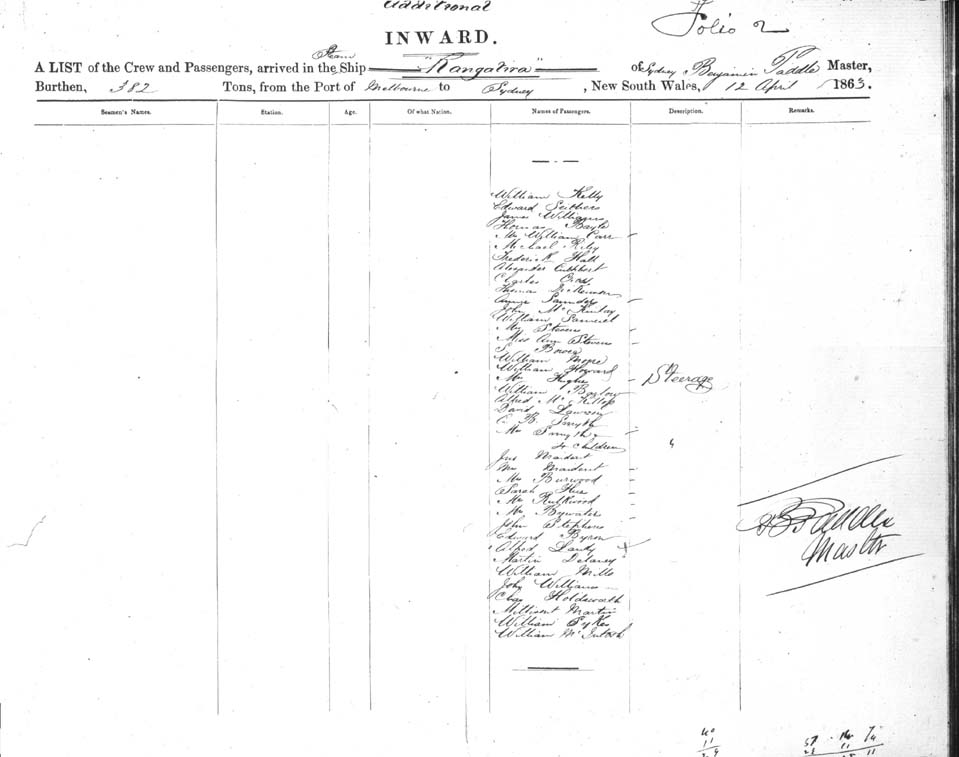 Additional
Folio 2
INWARD.
A LIST of the Crew and Passengers, arrived in the Steam Ship "Rangatira" of Sydney Benjamin Paddle Master,
Burthen, 382 Tons, from the Port of Melbourne to Sydney, New South Wales, 12 April 1863.
Seamen's Names. Station. Age. Of what Nation. Names of Passengers. Description. Remarks.
William Kelly
Edward
James Williams
Thomas Bayle
Mrs William Carr
Michael Riley
Frederick Hall
Alexander Cuthbert
Charles
Thomas
Saunders
John McKinlay
William Samuel
Mrs Stevens
Miss Ann Stevens
William More
William Howard
Mrs Hughes Steerage
William Barlow
Alfred McKillop
David Lawson
C. B. Smyth
Mrs Smyth &
4 Children 4
Jas Maident
Mrs Maident
Mrs Burwood
Sarah
Mrs
Mrs Bywater
John Stephens
Edward Byron
Alfred
Martin Delaney
William Mills
John Williams
Chas Holdsworth
Millicent Martin
William Sykes
William McIntosh
B Paddle
Master
40
11